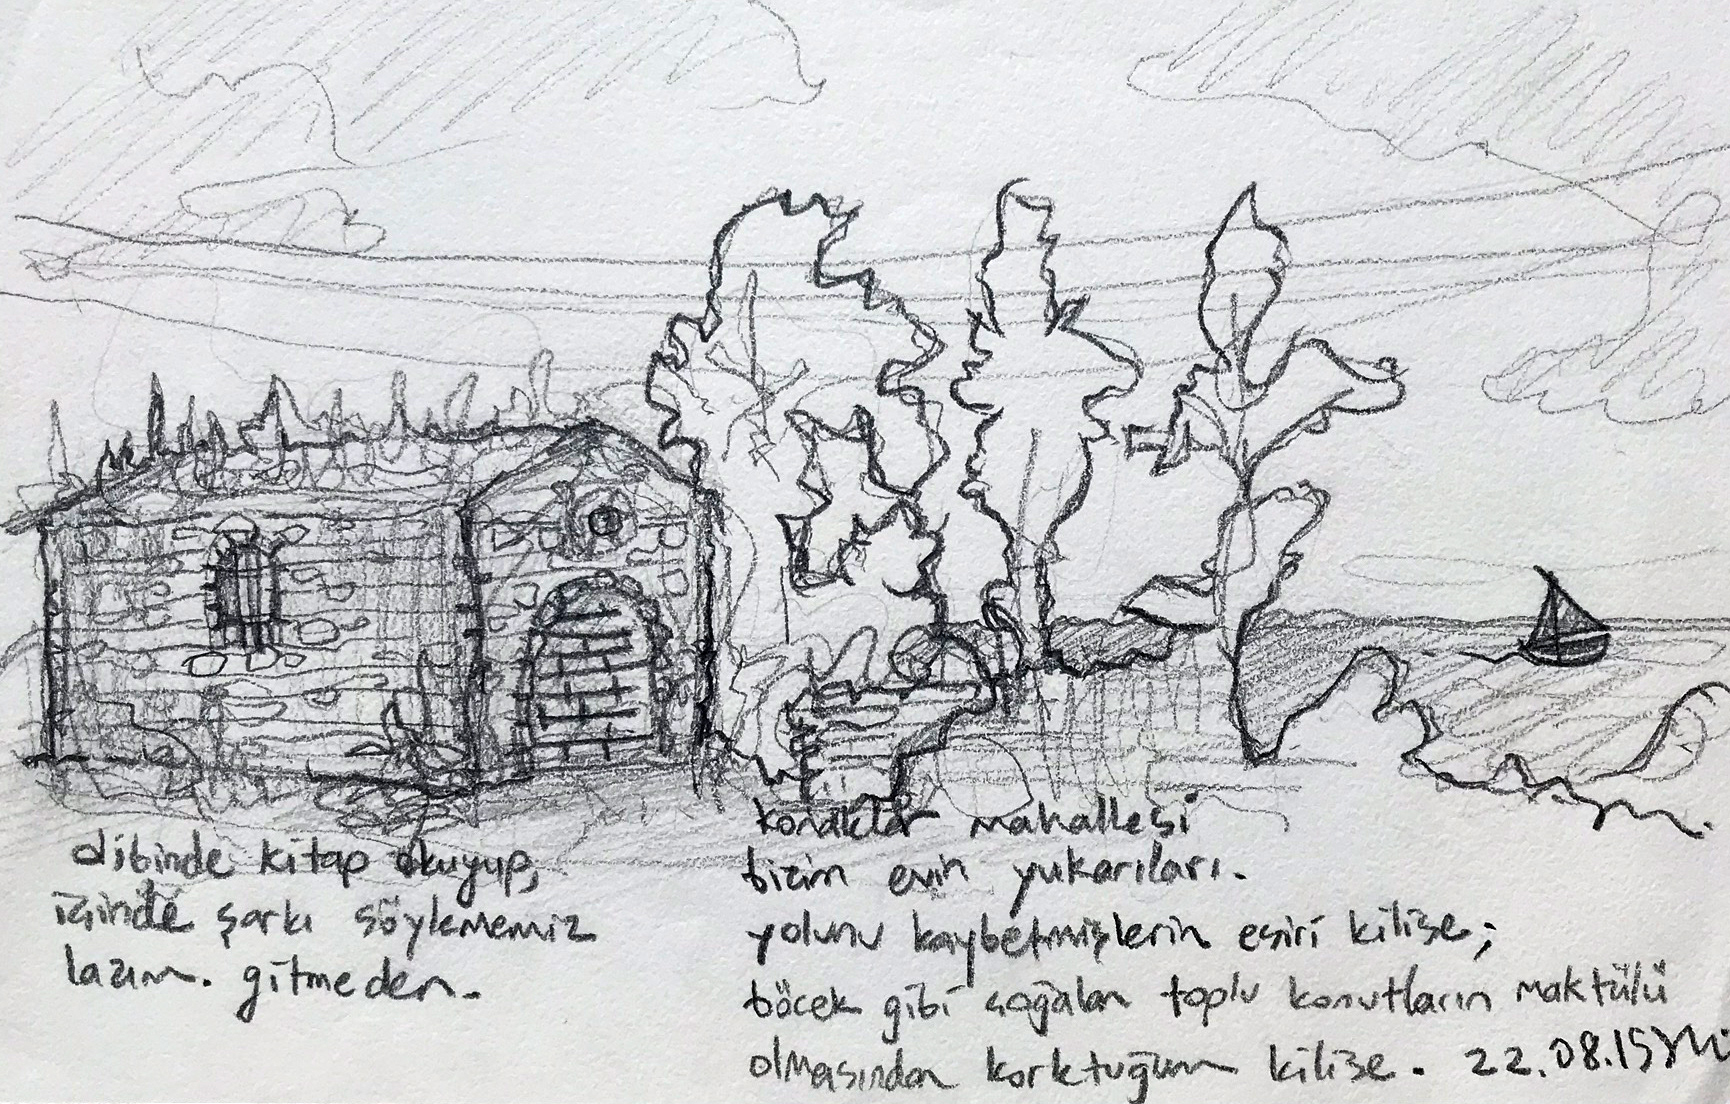 dibinde kitap okuyup,
içinde şarkı söylememiz
lazım. gitmeden.
konaklar mahallesi
bizim evin yukarıları.
yolunu kaybetmişlerin esiri kilise;
böcek gibi çoğalan toplu konutların maktülü
olmasından korktuğum kilise. 22.08.15